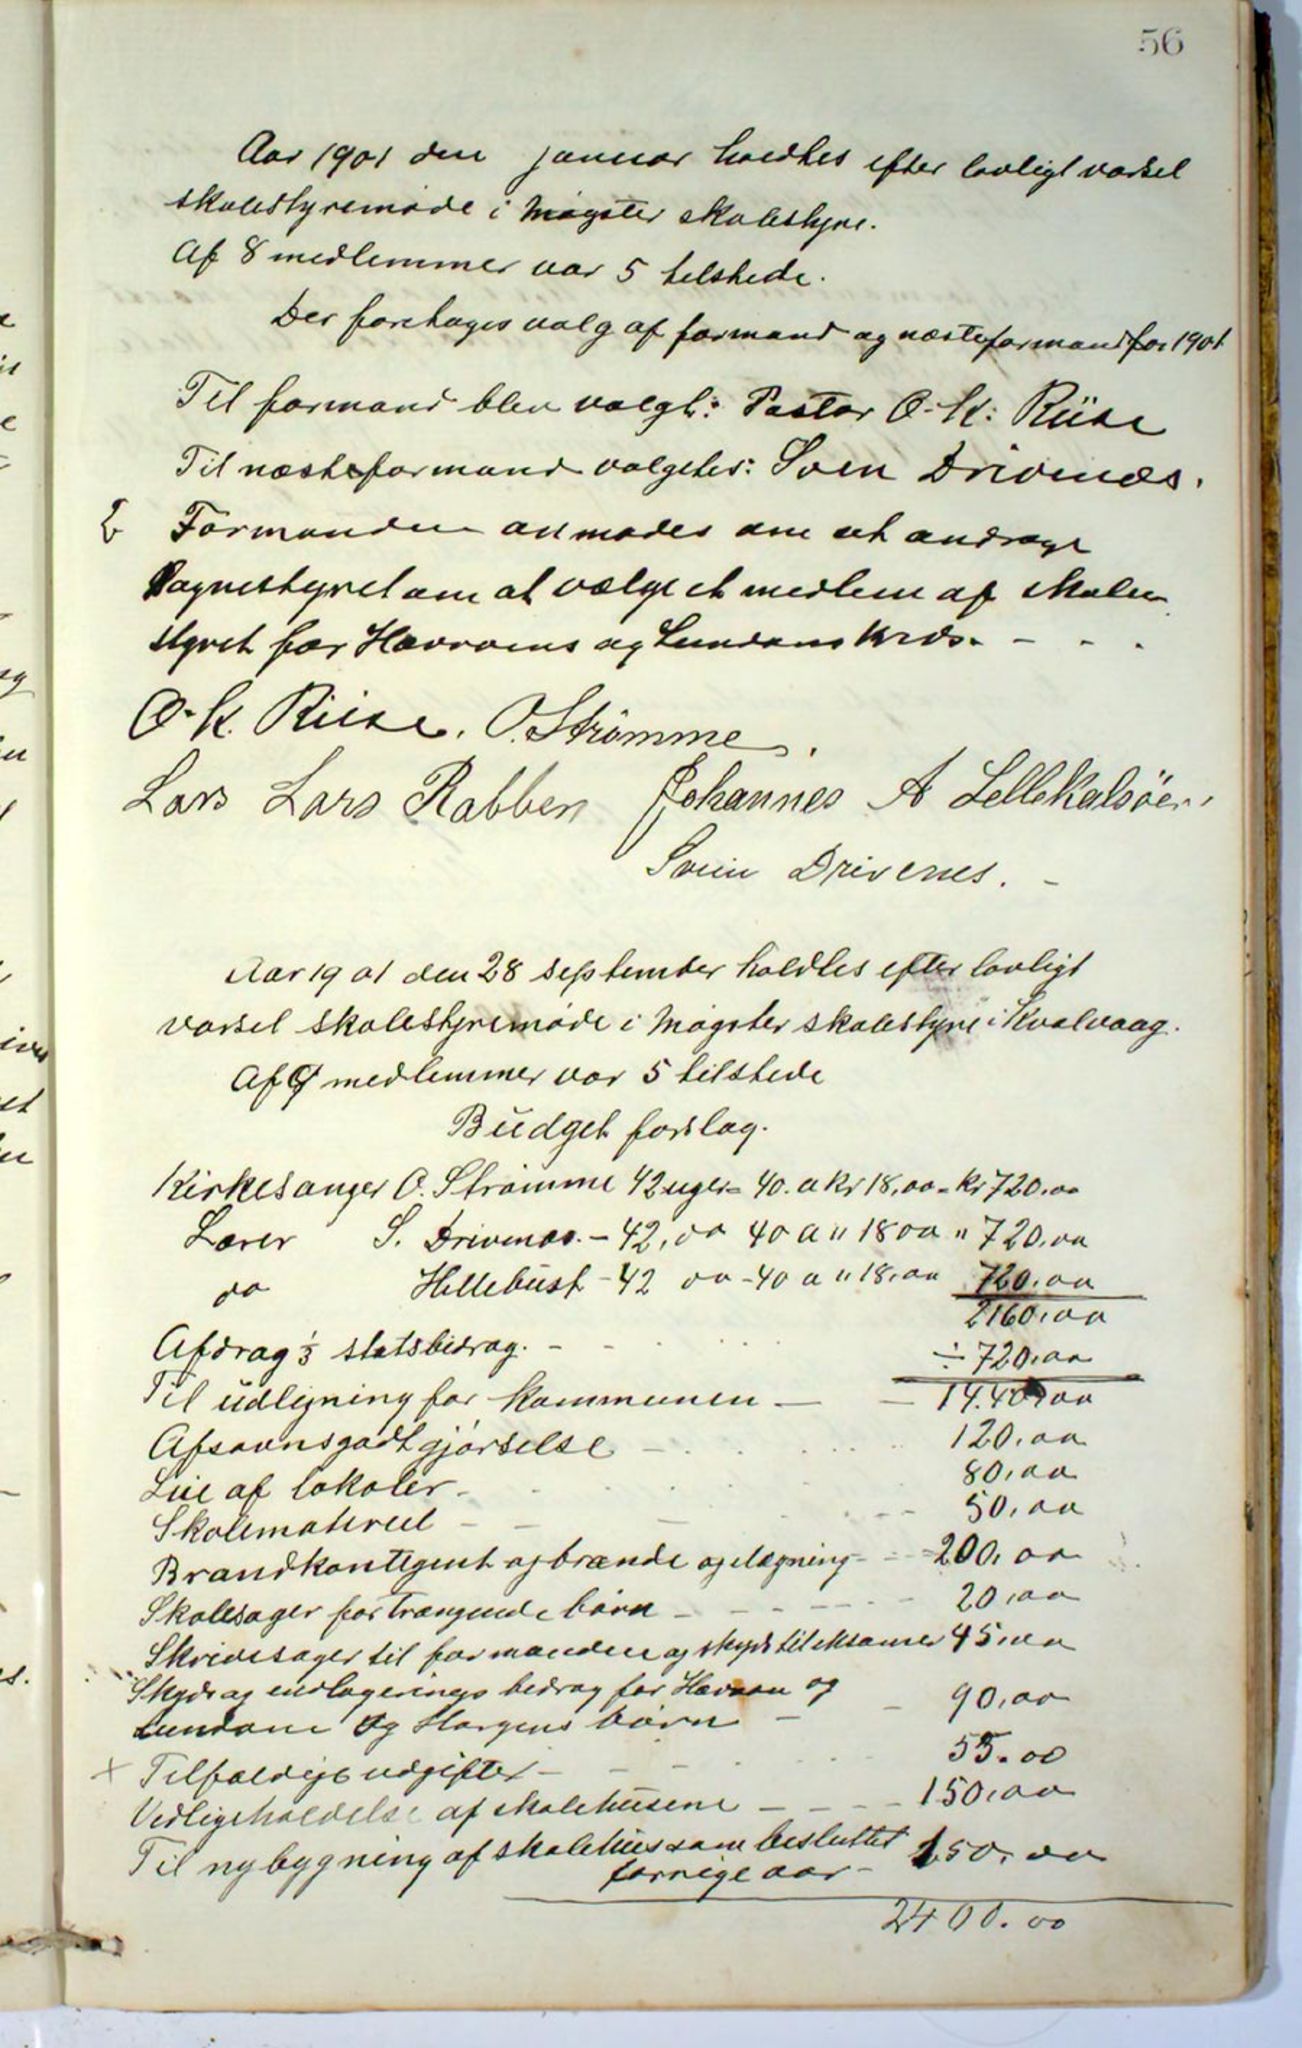 56
Aar 1901 den januar holdtes efter lovligt varsel
skolestyremøde i Møgster skolestyre.
Af 8 medlemmer var 5 tilstede.
Der foretoges valg af formand og næsteformand for 1901
Til formand blev valgt: Pastor O. K. Riise
Til næsteformand valgtes: Sven Drivenæs.
2 Formanden anmodes om at andrage
Sognestyret om at vælge et medlem af skole
styret for Havroens og Lundøens krds. - - -
O. K. Riise. O. Strømme.
Lars Lars Rabben Johannes A Lellekalsöen.
Svein Drivenes. -
Aar 1901 den 28 september holdtes efter lovligt
varsel skolestyremøde i Møgster skolestyre i Kvalvaag.
Af 9 medlemmer var 5 tilstede
Budget forslag.
Kirkesanger O. Strømme 42 uger = 40. a kr 18,00 = kr 720.00
Lærer S. Drivenæs. - 42, do 40 a " 18 00 " 720.00
do Hillebust - 42 do - 40 a " 18.00 720.00
2160.00
Afdrag 1/3 statsbidrag. - - ÷ 720.00
Til udligning for kommunen - - 14.40,00
Afsavnsgodtgjørselse - 120.00
Leie af lokaler - 80.00
Skolemateriel - - - 50.00
Brandkontigent og brænde og lægning - 200.00
Skolesager for trængende børn - - - 20.00
Skrivesager til formanden og skyds til eksamen 45.00
Skyds og indlogerings bidrag for Havroen og
Lundøen og Horgens børn - - 90.00
+ Tilfældige udgifter - - - 55.00
Vedligeholdelse af skolehusene - - - 150.00
Til nybygning af skolehus som besluttet
forrige aar - 150.00
2400.00